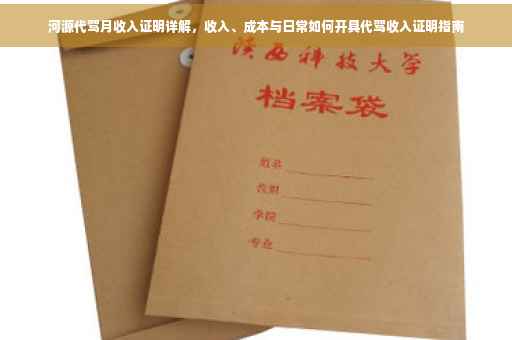 河源代骂月收入证明详解，收入、成本与日常如何开具代骂收入证明指南
陕西科技大学
档案袋
姓名
班级
学院
专业